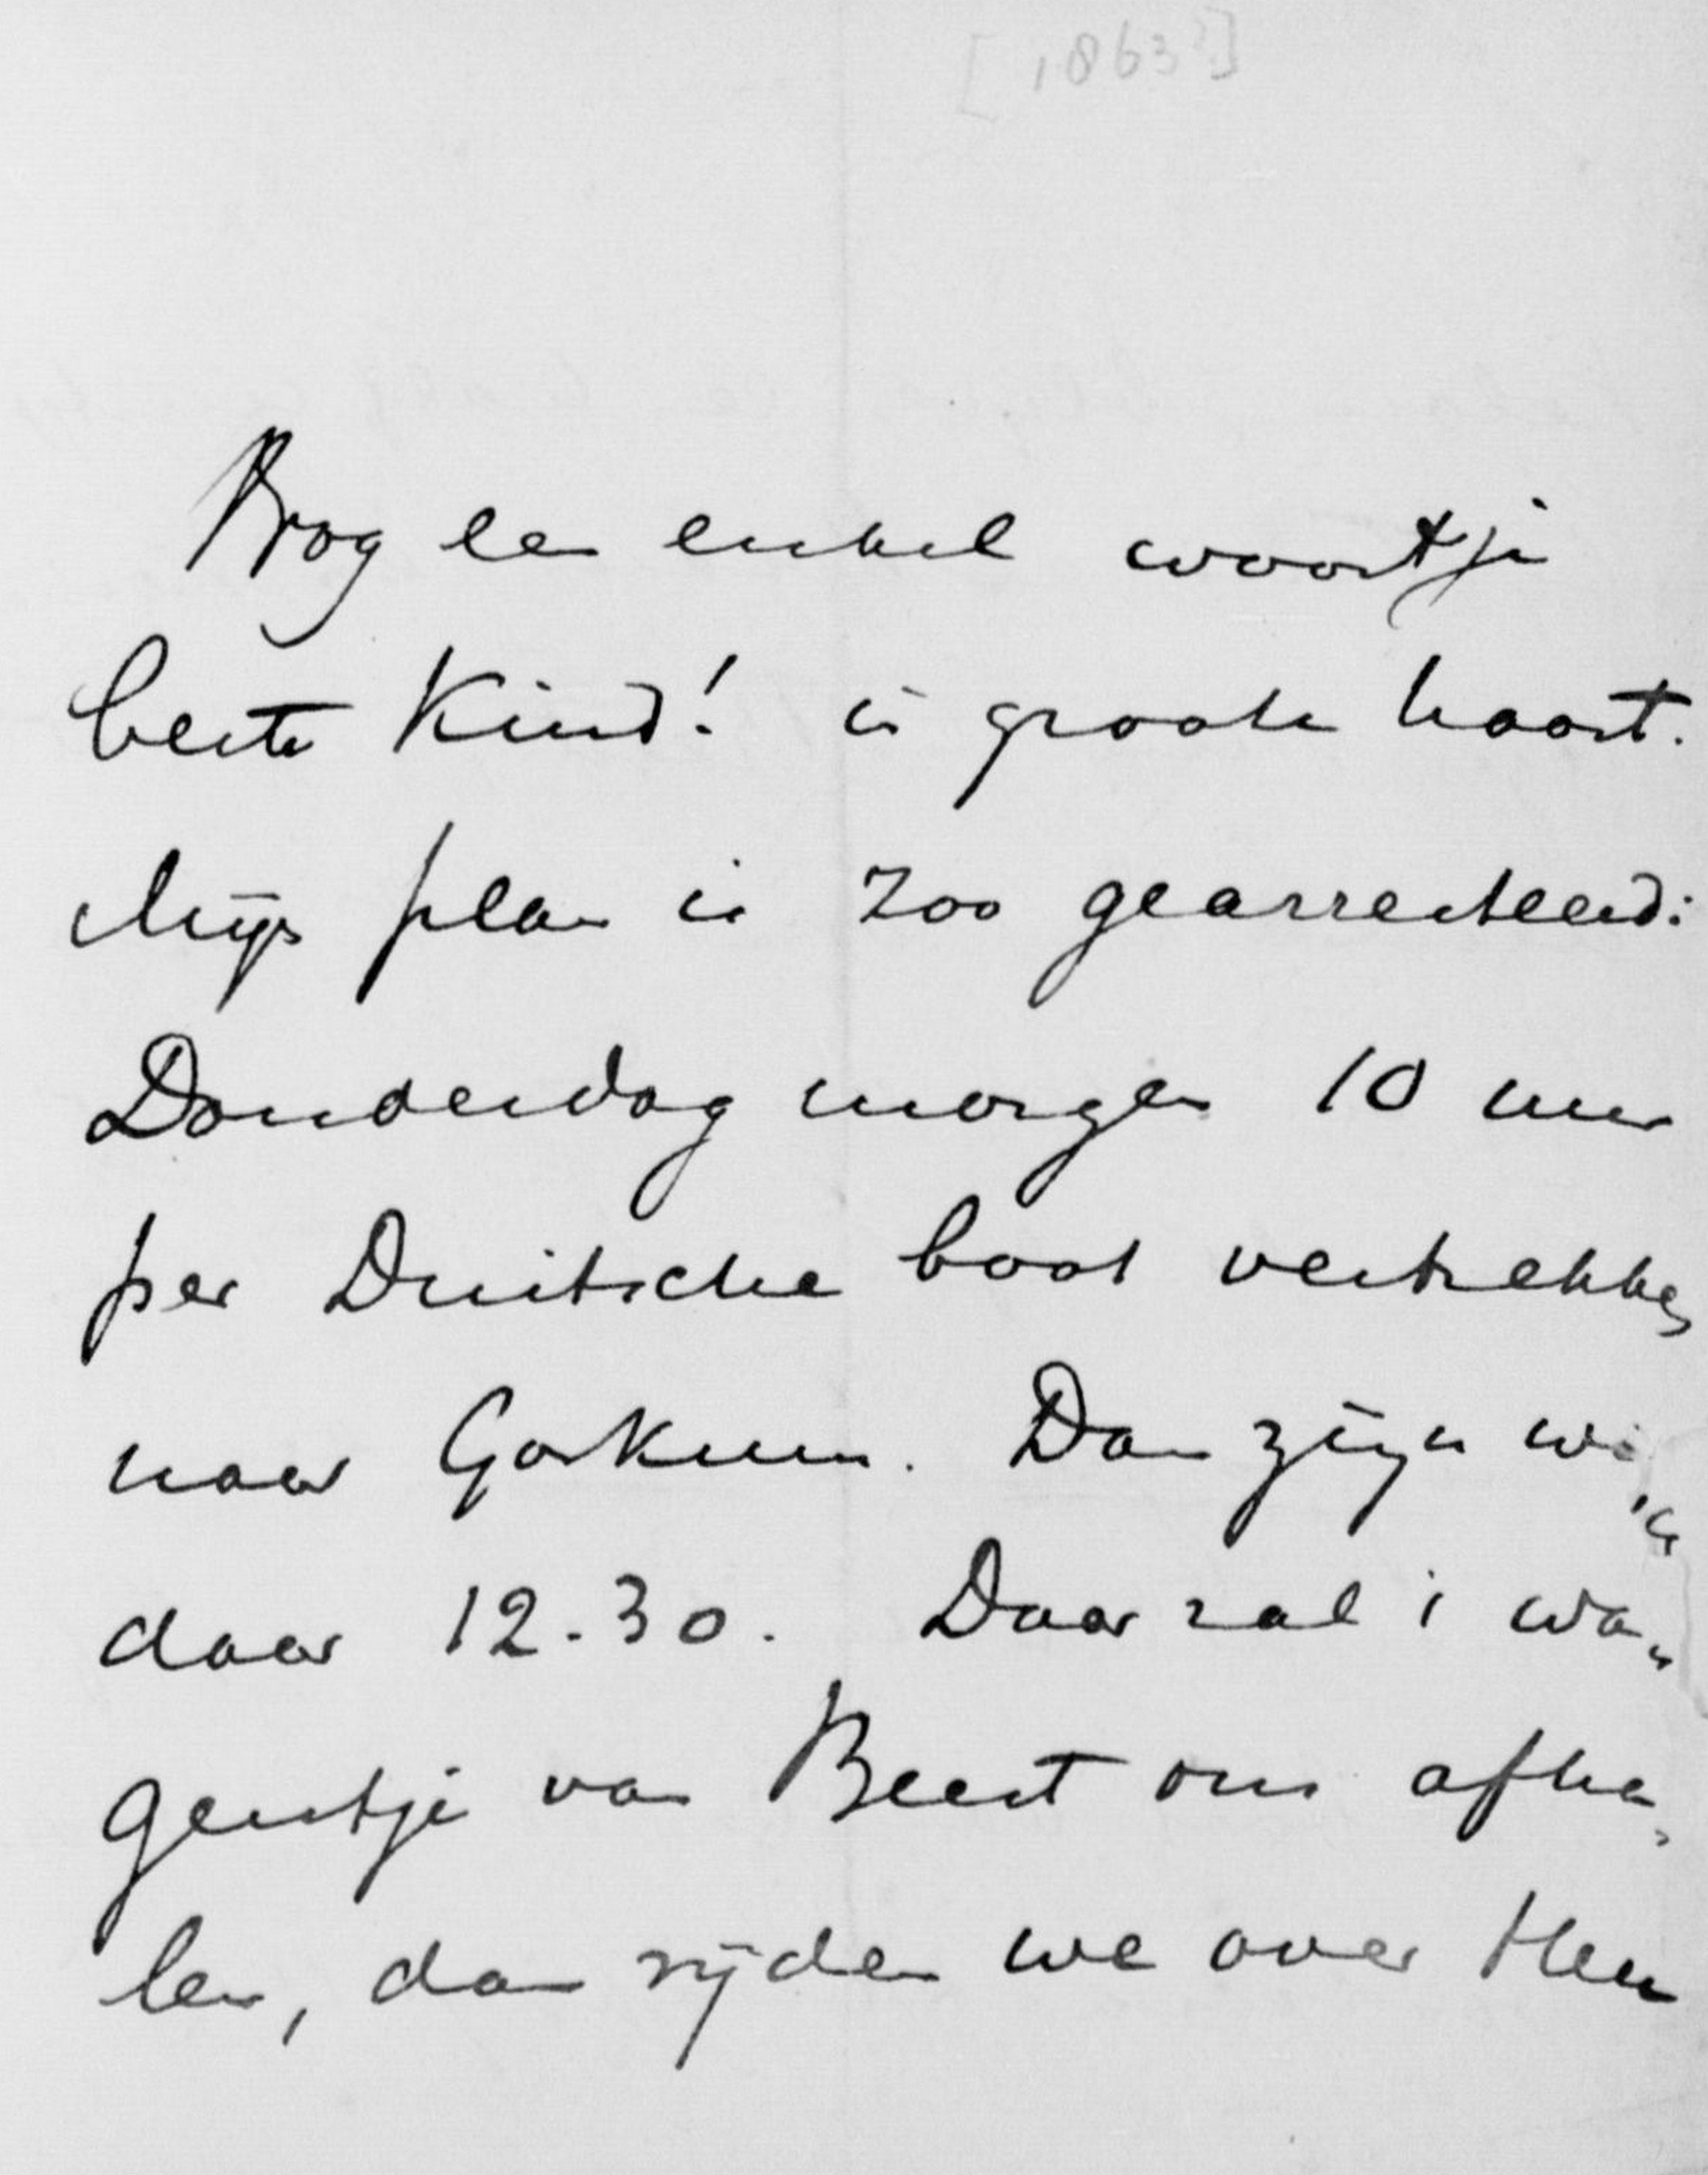 [1863?]
Nog een enkel woordtje
beste Kind! in groote haast.
Mijn plan is zoo gearresteerd:
Donderdag morgen 10 uur
per Duitsche boot vertrekken
naar Gorkum. Dan zijn wij
daar 12.30. Daar zal 'n wa-
gentje van Beest ons afha-
len, dan rijden we over Heu